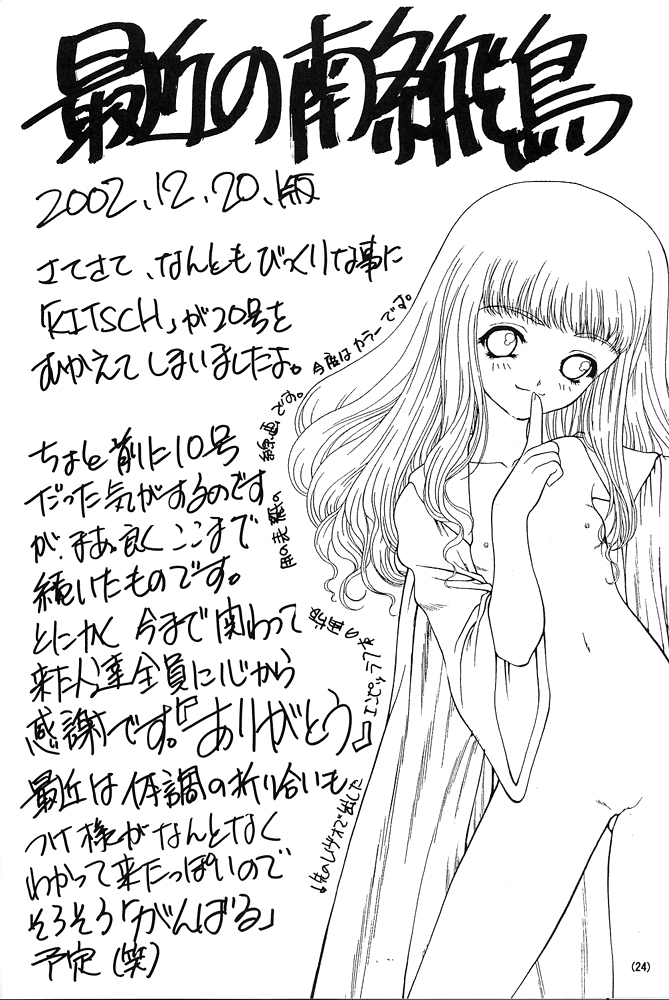 最近の南条飛鳥
2002.12.20.版
さてさて、なんともびっくりな事に
「KITSCH」が20号を
むかえてしまいましたよ。
ちょと前に10号
だった気がするのです
が、まあ良くここまで
続いたものです。
とにかく今まで関わって
来た人達全員に心から
感謝です。『ありがとう』
最近は体調の折り合いも
つけ様がなんとなく
わかって来たっぽいので
そろそろ「がんばる」
予定(笑)
今度はカラーです。
原画です。
(24)